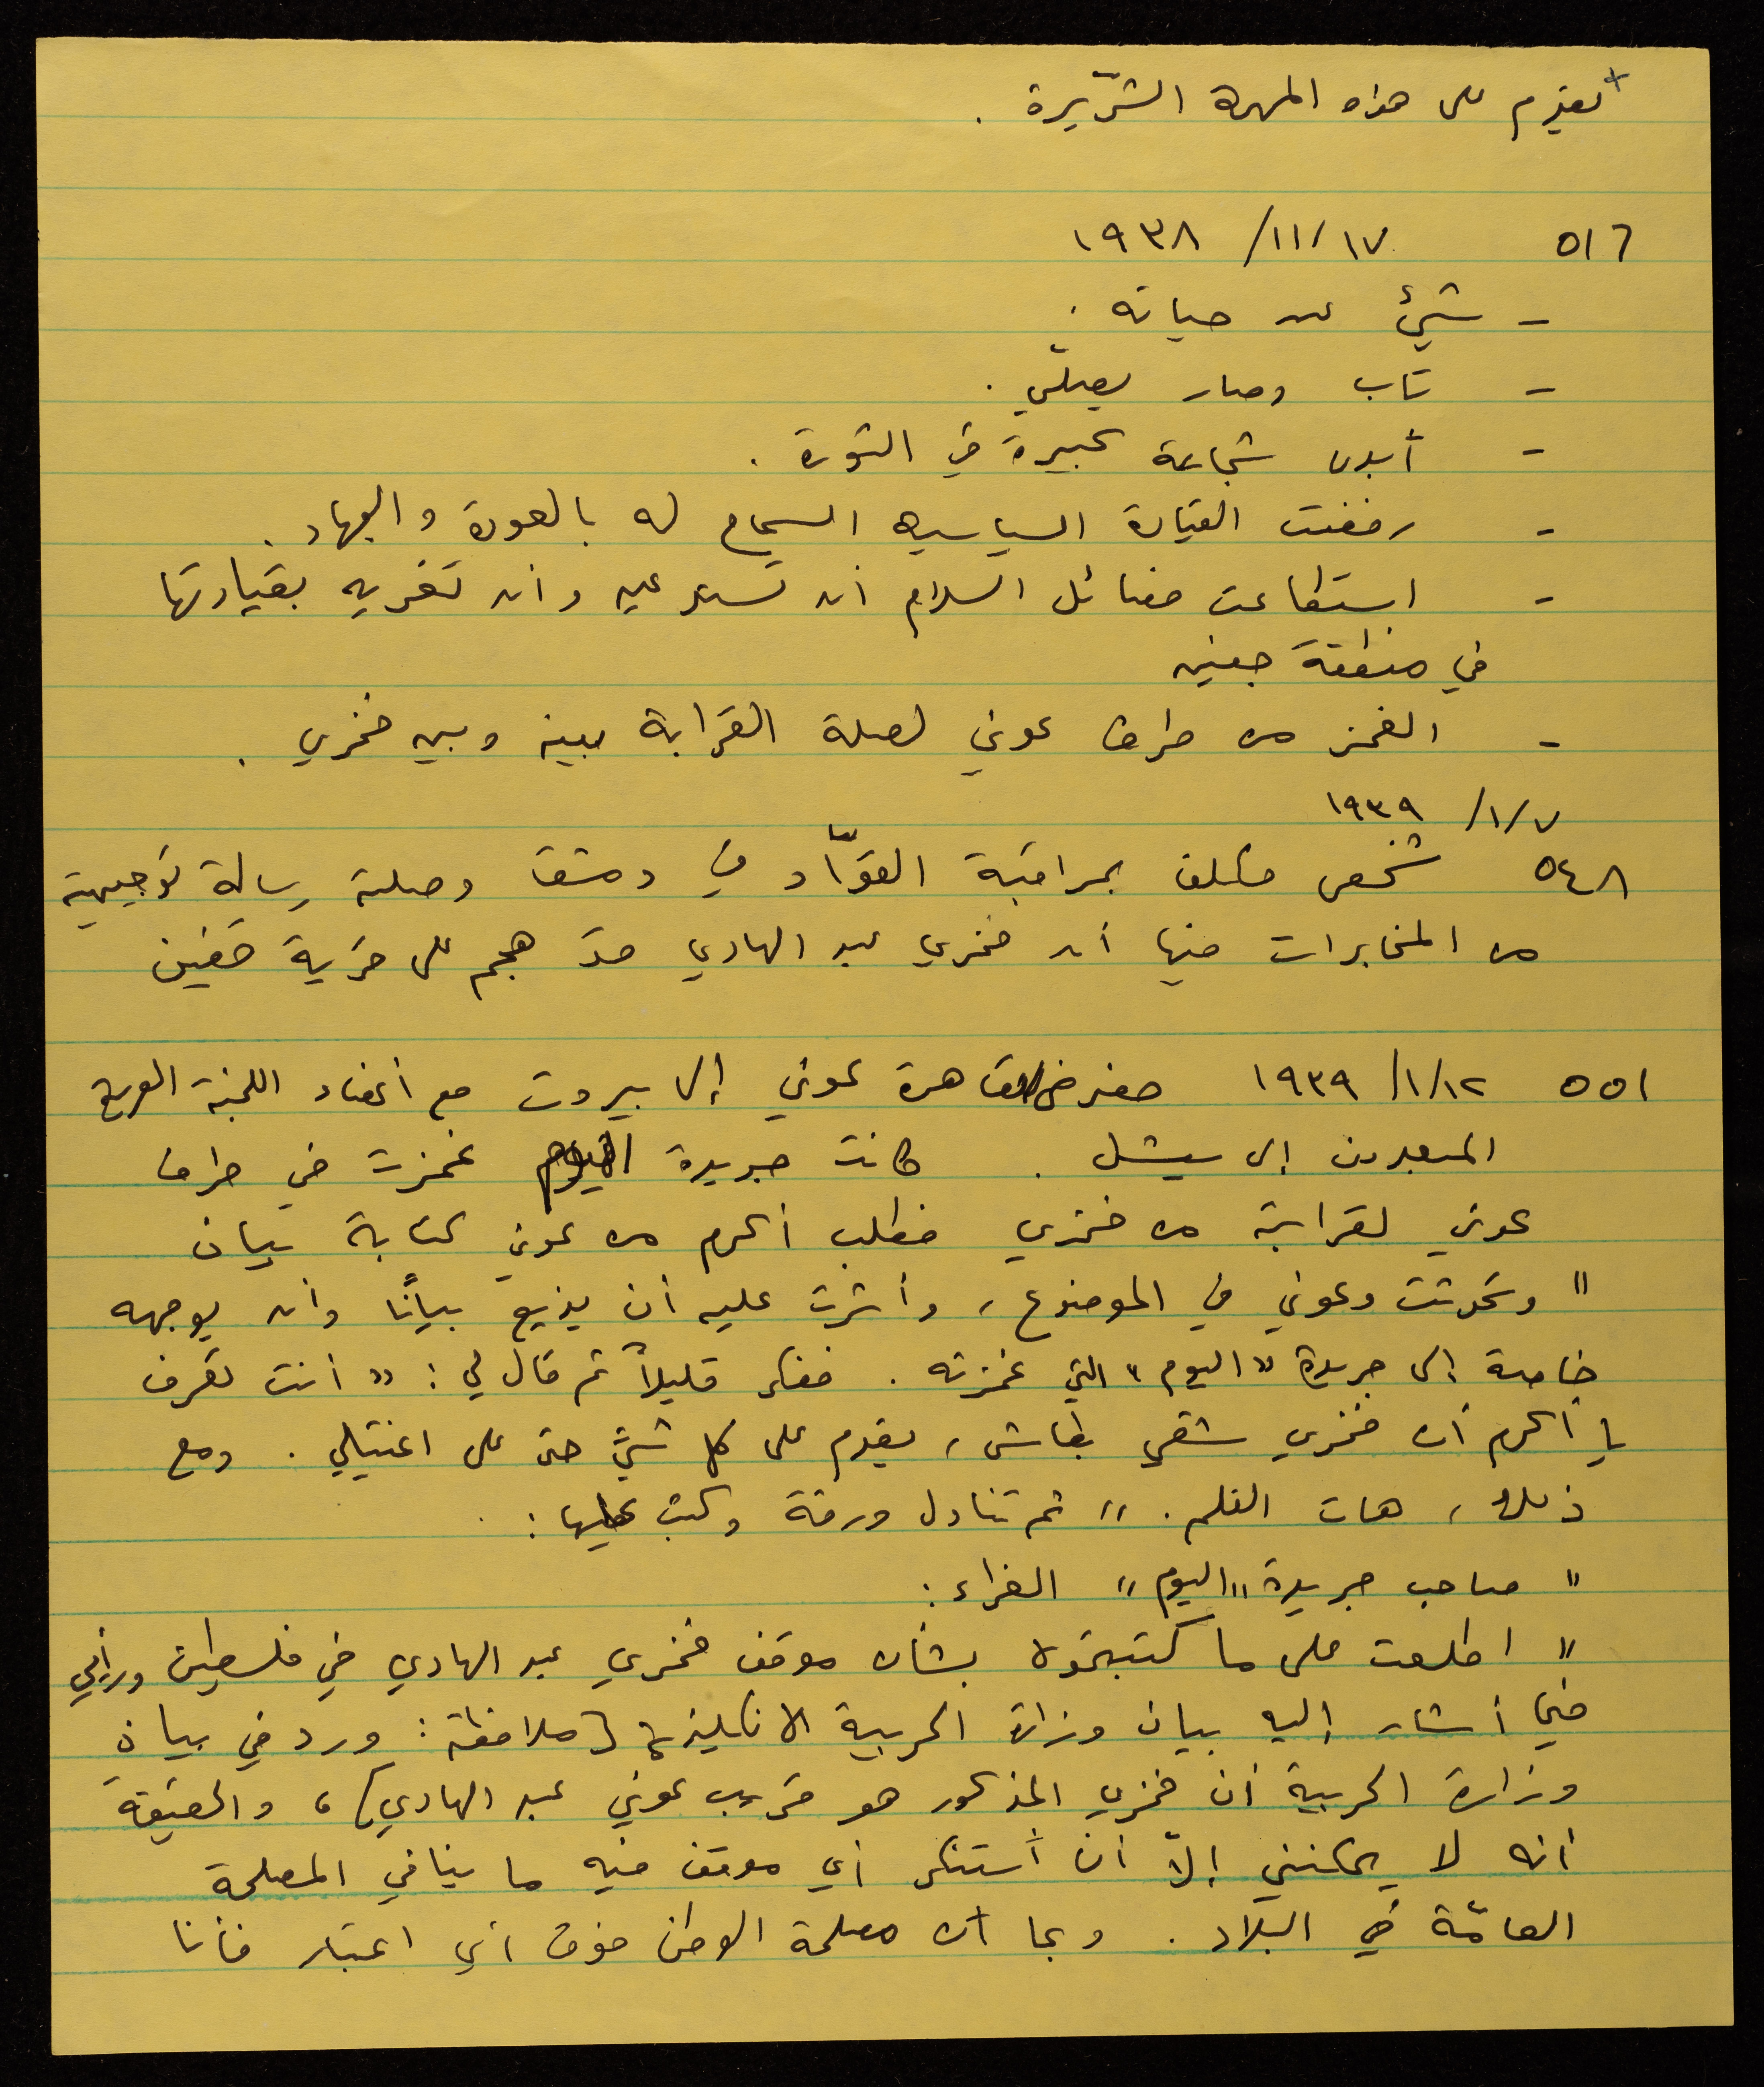 + تقدم على هذه المهمة الشرّيرة .
٥١٦ ١٧/ ١١/ ١٩٣٨
- شيئ عن حياته .
- تاب وصار يصلّي .
- أبدى شجاعة كبيرة في الثورة .
- رفضت القيادة السياسية السماح له بالعودة والجهاد .
- استطاعت فصائل السلام ان تستدعيه وان تغريه بقيادتها
في منطقة جنين
- الغمز من طرف عوني لصلة القرابة بينه وبين فخري .
٧/ ١/ ١٩٣٩
٥٤٨ شخص مكلف بمراقبة القوّاد في دمشق وصلته رسالة توجيهية
من المخابرات فيها أن فخري عبد الهادي قد هجم على قرية قفين
٥٥١ ١٢/ ١/ ١٩٣٩ حضر من القاهرة عوني إلى بيروت مع أعضاء اللجنة العربية
المبعدون إلى سيشل . كانت جريدة اليوم غمزت في طرف
عوني لقرابته من فخري فطلب أكرم من عوني كتابة بيان
" وتحدثت وعوني في الموضوع ، وأشرت عليه أن يذيع بيانًا وان يوجهه
خاصة إلى جريدة "اليوم" التي غمزته . ففكر قليلاً ثم قال لي : " أنت تعرف
يا أكرم أن فخري شقي بطاش ، يقدم على كل شيْ حتى على اغتيالي . ومع
ذلك ، هات القلم . " ثم تناول ورقة وكتب عليها :
" صاحب جريدة "اليوم" الغراء :
" اطلعت على ما كتبتموه بشأن موقف فخري عبد الهادي في فلسطين ورأيي
فيما أشار إليه بيان وزارة الحربية الانكليزية [ملاحظة : ورد في بيان
وزارة الحربية أن فخري المذكور هو قريب عوني عبد الهادي] ، والحقيقة
أنه لا يمكنني إلاّ أن أستنكر أي موقف فيه ما ينافي المصلحة
العامّة في البلاد . وبما أن مصلحة الوطن فوق أي اعتبار فأنا